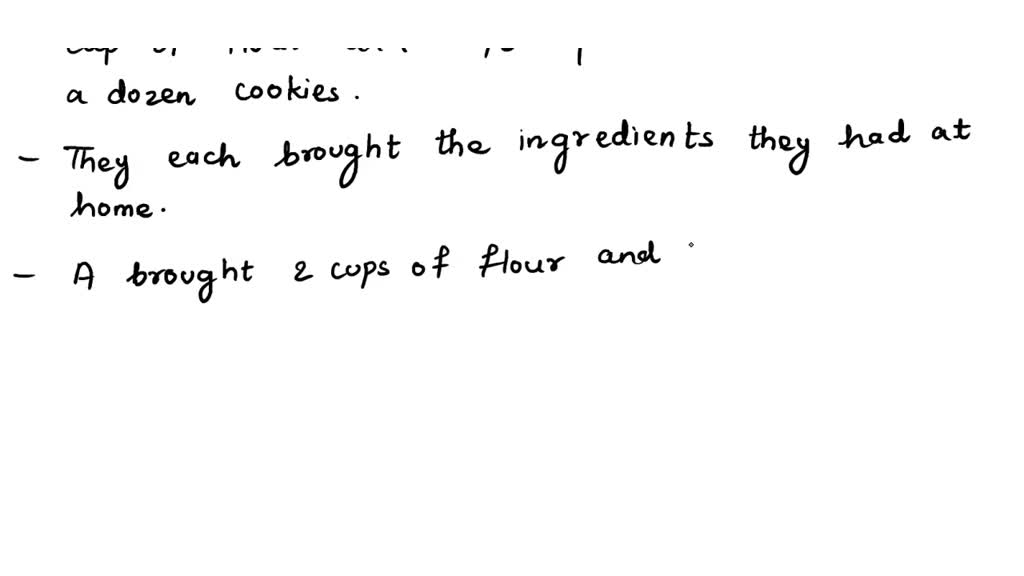 a dozen cookies.
- They each brought the ingredients they had at
home.
- A brought 2 cups of flour and